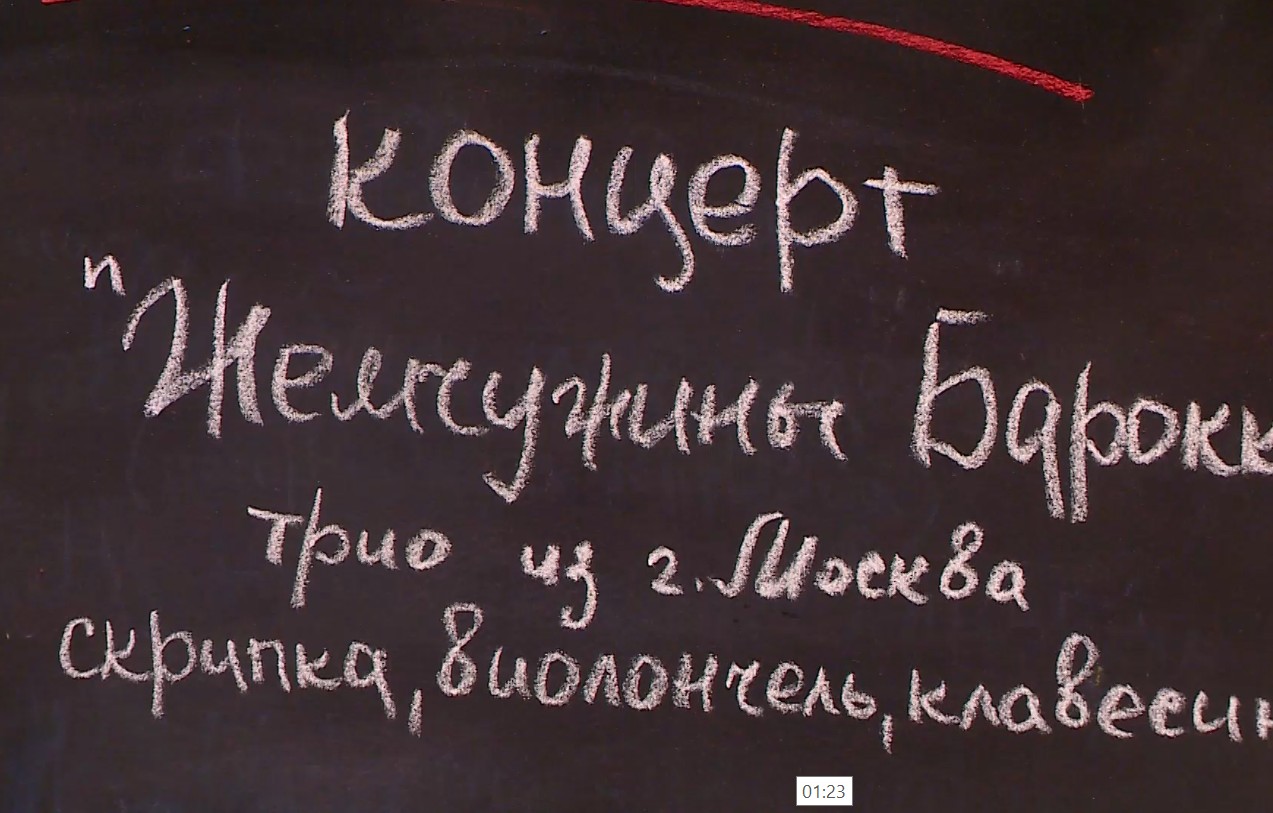 концерт
"Жемчужины Барокк
трио из г. Москва
скрипка, виолончель, клавесин
01:23